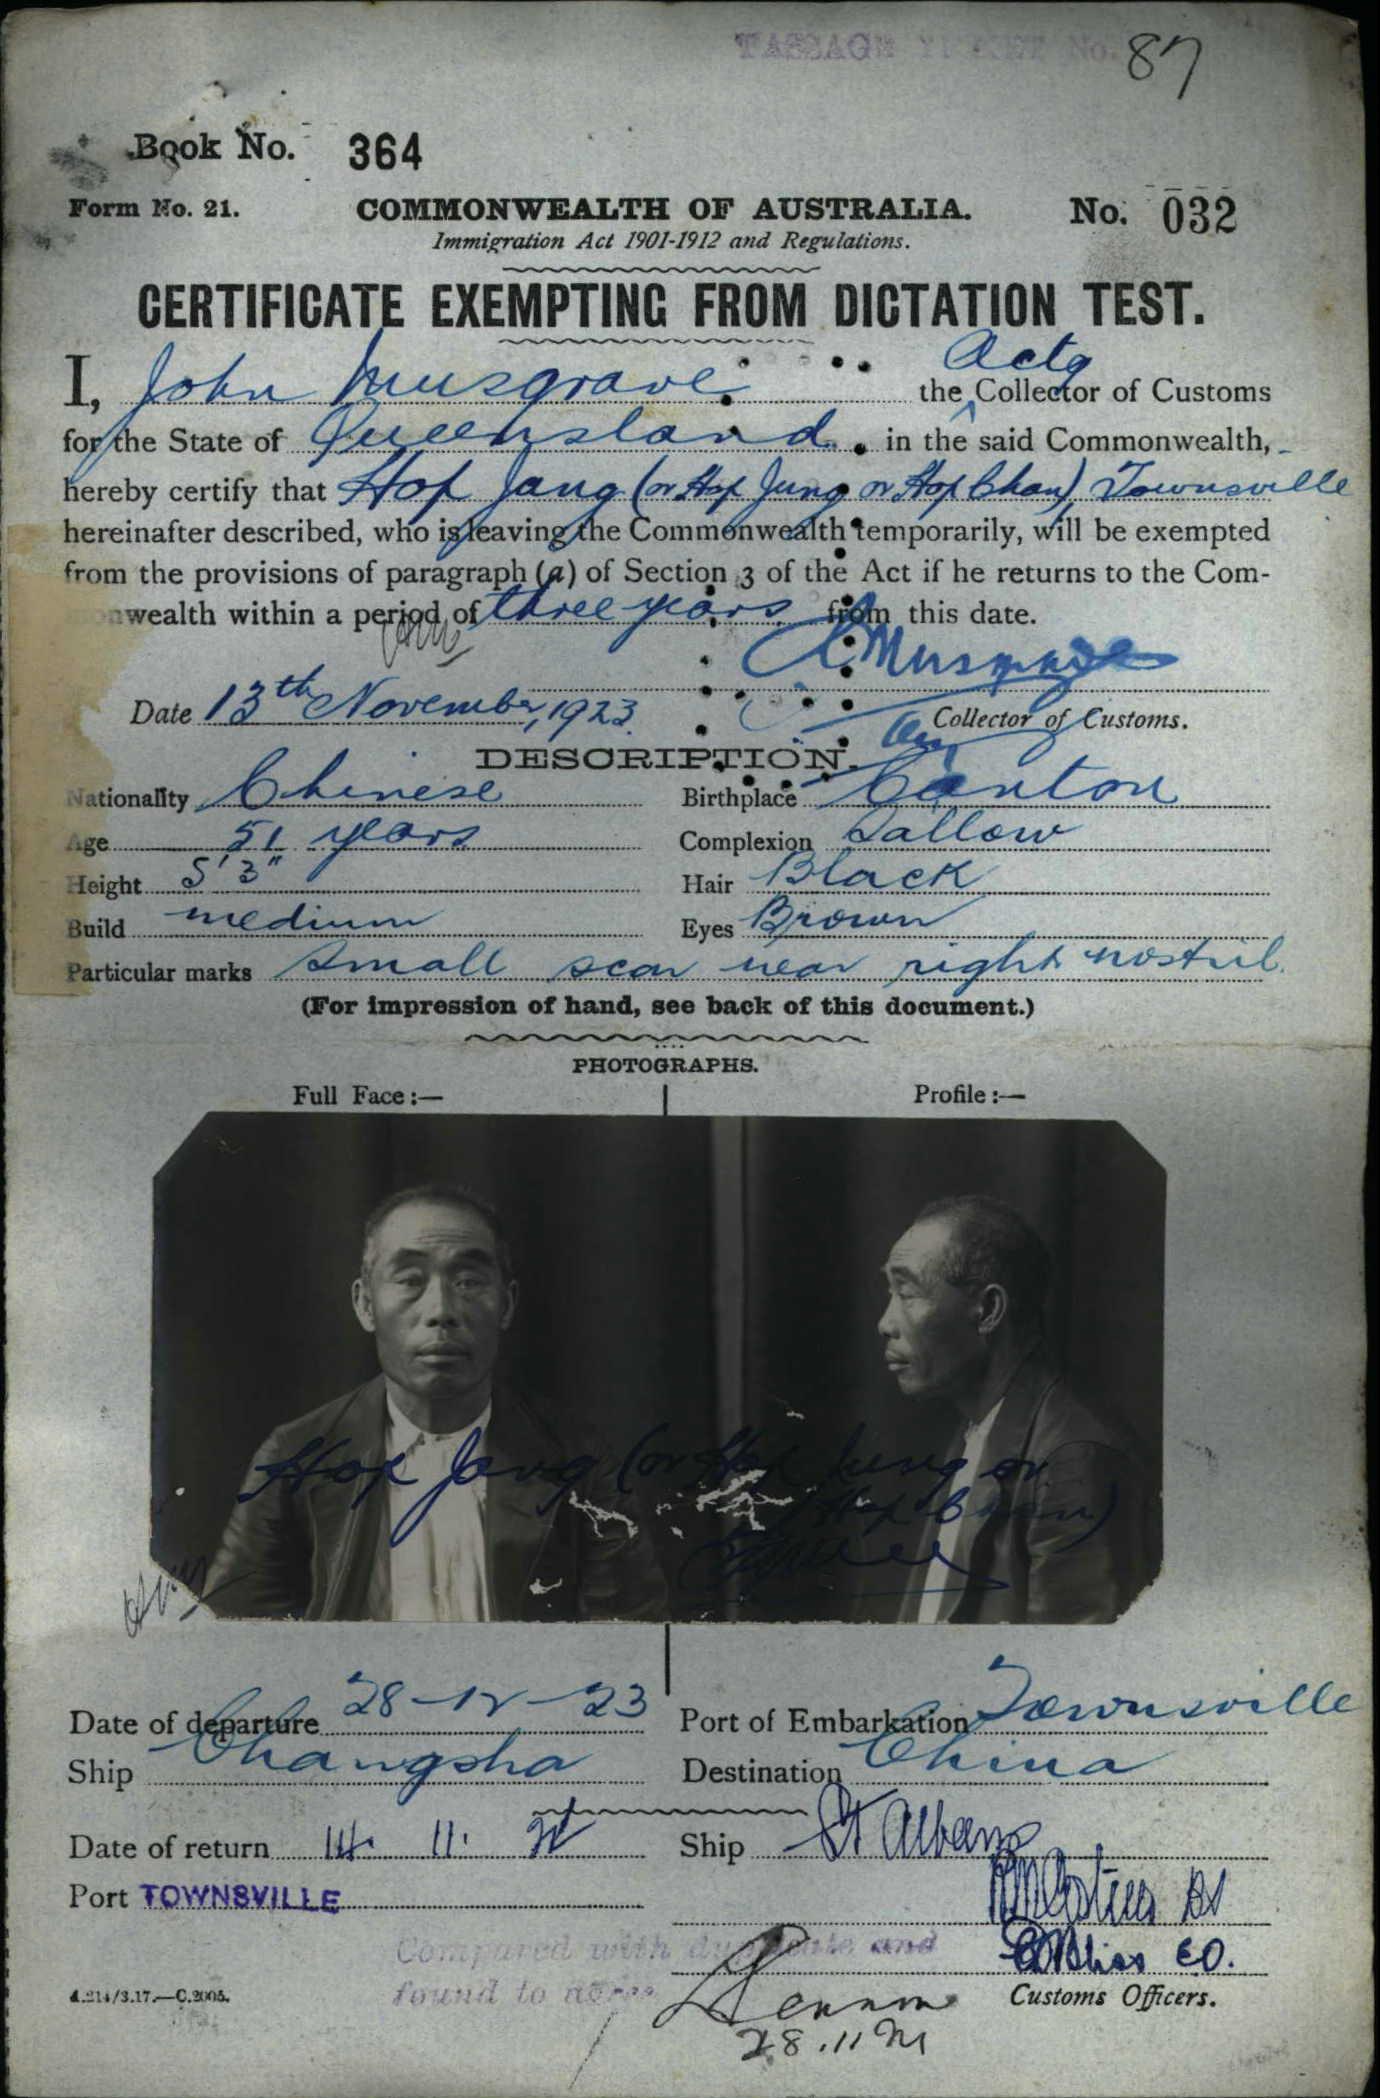 PASSAGE TICKET No. 87
Book No. 364
Form No. 21. COMMONWEALTH OF AUSTRALIA. No. 032
Immigration Act 1901-1912 and Regulations.
CERTIFICATE EXEMPTING FROM DICTATION TEST.
Actg
I, John Musgrave the Collector of Customs
for the State of Queensland in the said Commonwealth,
hereby certify that Hop Jang (or Hop Jung or Hop Chan) Townsville
hereinafter described, who is leaving the Commonwealth temporarily, will be exempted
from the provisions of paragraph (a) of Section 3 of the Act if he returns to the Com-
monwealth within a period of three years from this date.
Musgrave
Date 13th November, 1923. Collector of Customs.
DESCRIPTION.
Nationality Chinese Birthplace Canton
Age 51 years Complexion Sallow
Height 5' 3" Hair Black
Build medium Eyes Brown
Particular marks Small scar near right nostril.
(For impression of hand, see back of this document.)
PHOTOGRAPHS.
Full Face :— Profile :—
Hop Jang (or Hop Jung or
Hop Chan)
Date of departure 28-12-23 Port of Embarkation Townsville
Ship Changsha Destination China
Date of return 14. 11. Ship St Albans
Port TOWNSVILLE
Compared with duplicate and
found to agree
Customs Officers.
28.11